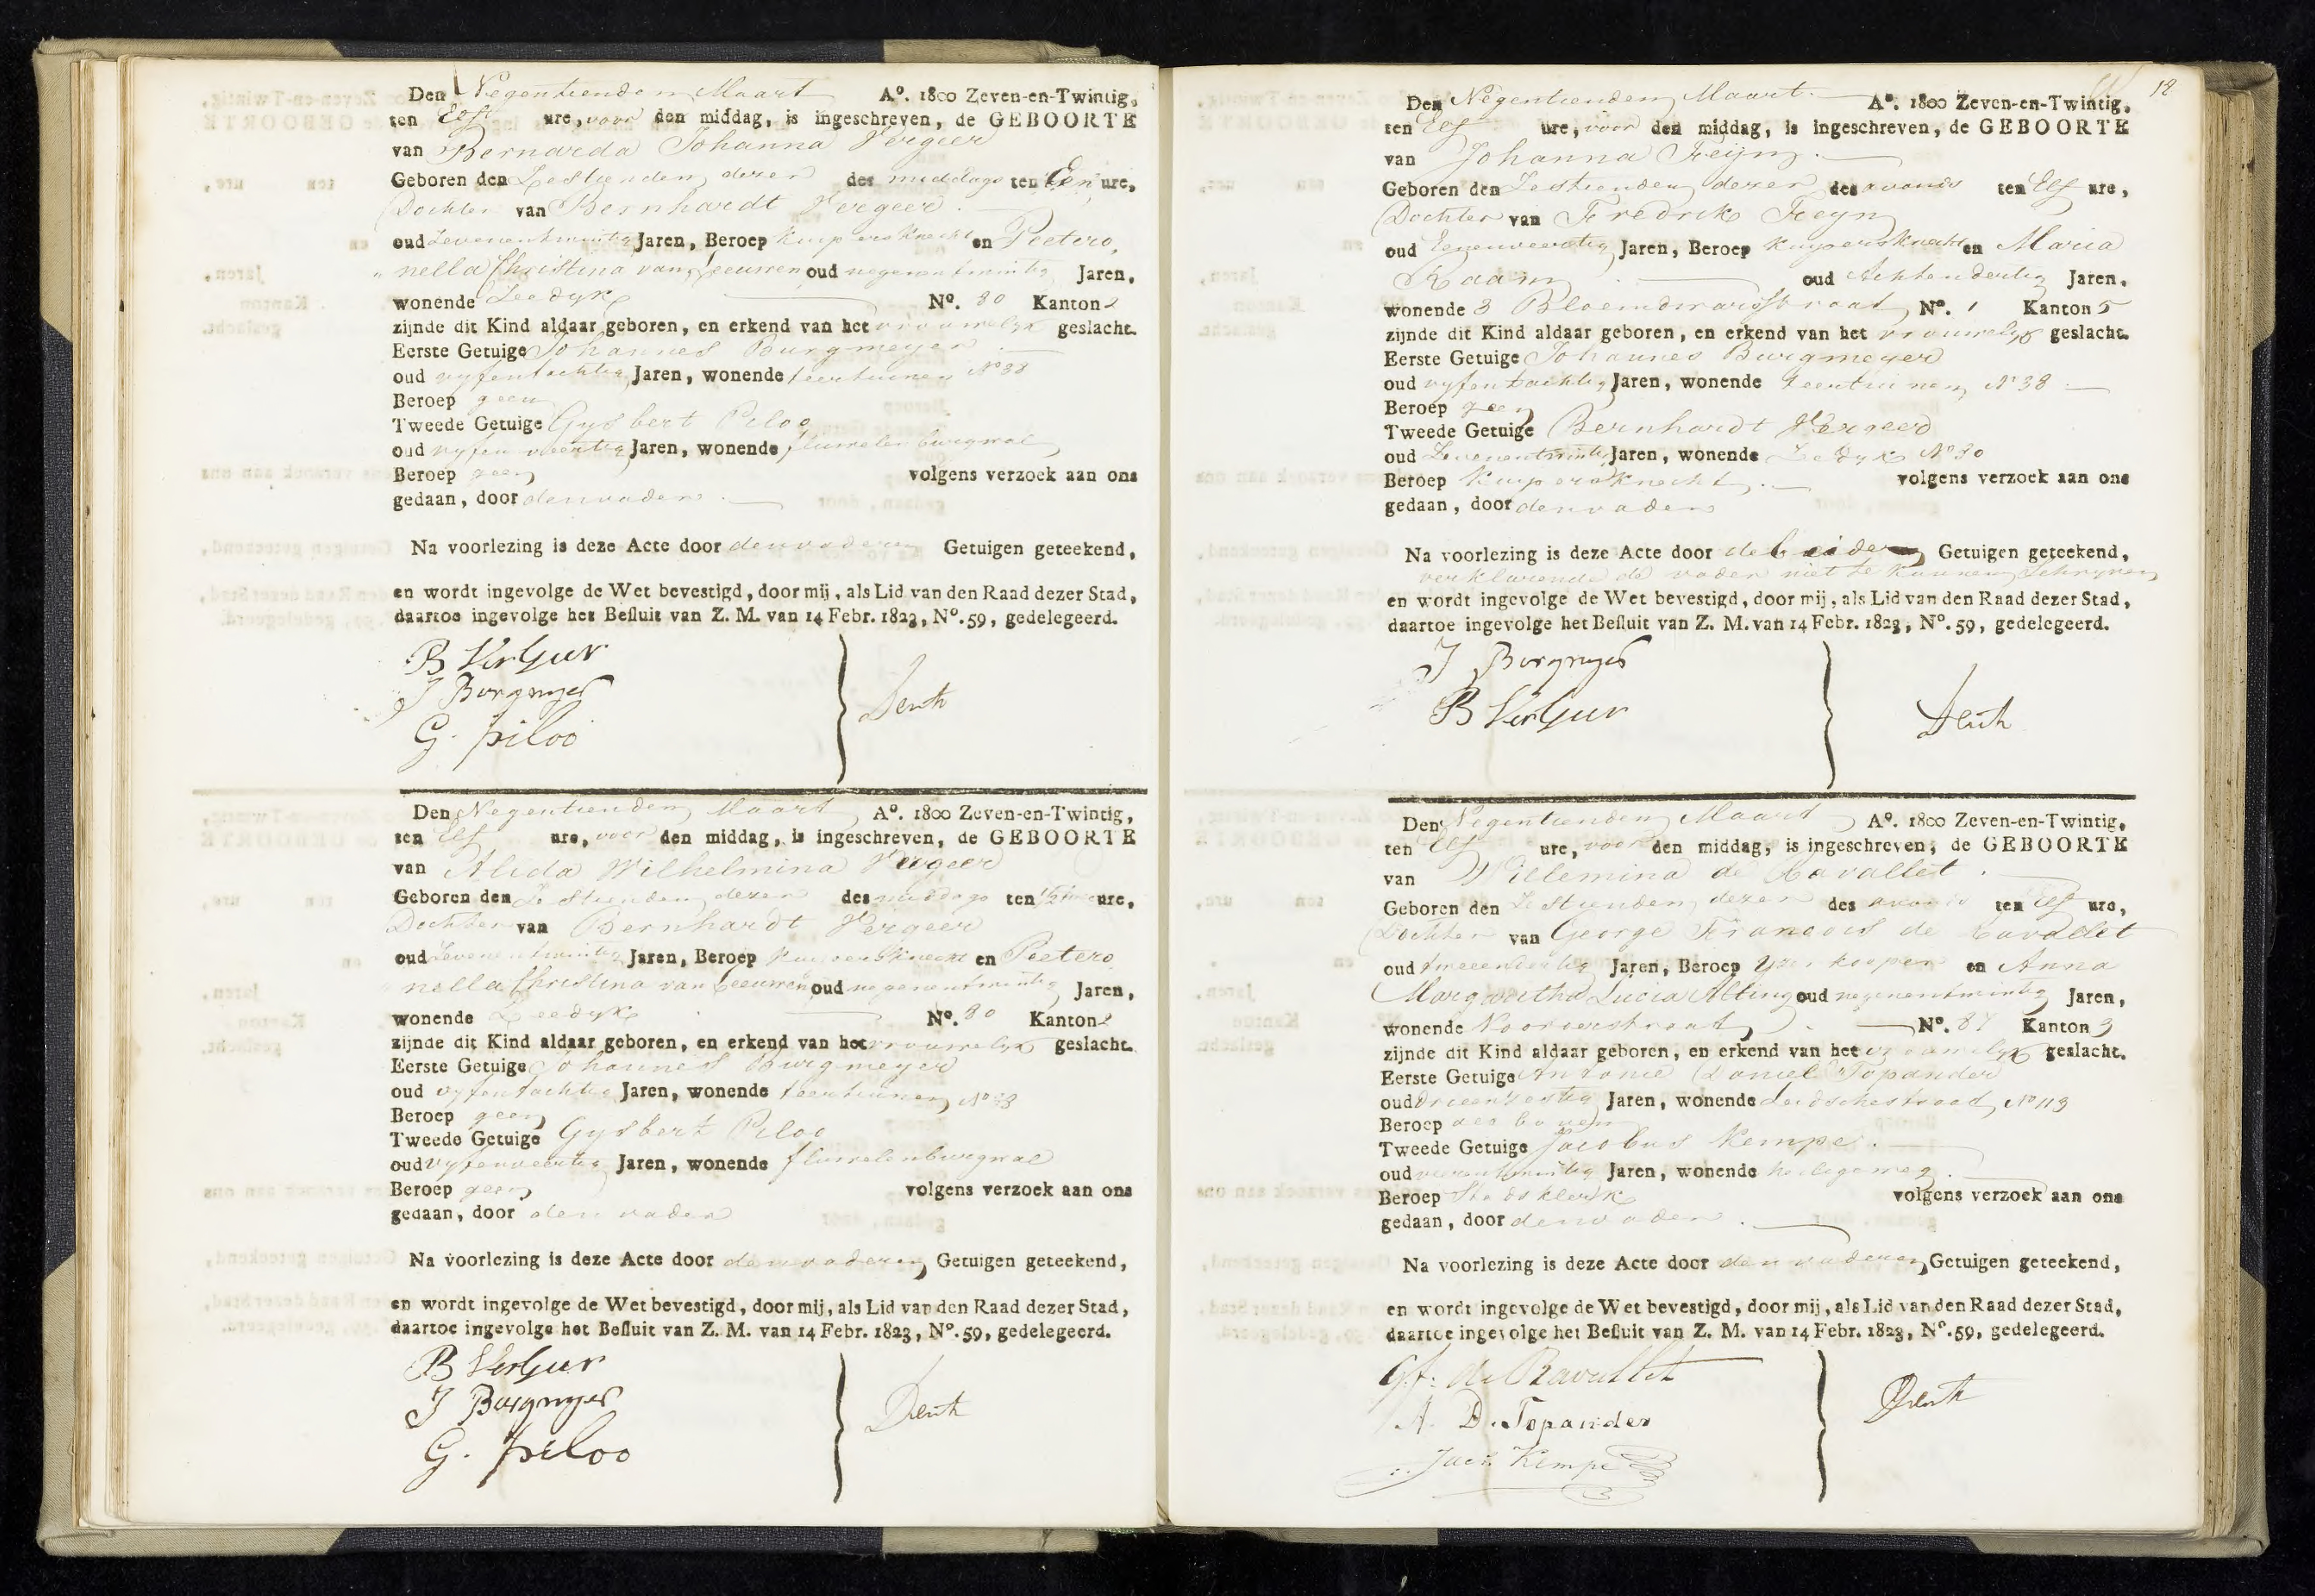 Den Negentienden Maart A⁰. 1800 Zeven-en-Twintig,
ten Elf ure, voor den middag, is ingeschreven, de GEBOORTE
van Bernarda Johanna Vergeer
Geboren den Zestienden dezer des middags ten Een ure,
Dochter van Bernhardt Vergeer
oud Zevenentwintig Jaren, Beroep Kuipersknecht en Peetero
nella Christina van Leeuwen oud negenentwintig Jaren,
wonende Zeedyk N⁰. 80 Kanton 2
zijnde dit Kind aldaar geboren, en erkend van het vrouwelyk geslacht.
Eerste Getuige Johannes Burgmeyer
oud vyfentachtig Jaren, wonende Teertuinen N⁰ 38
Beroep geen
Tweede Getuige Gysbert Piloo
oud vyfenveertig Jaren, wonende fluwelenburgwal
Beroep geen volgens verzoek aan ons
gedaan, door den vader
Na voorlezing is deze Acte door den vader en Getuigen geteekend,
en wordt ingevolge de Wet bevestigd, door mij, als Lid van den Raad dezer Stad,
daartoe ingevolge het Besluit van Z. M. van 14 Febr. 1823, N⁰. 59, gedelegeerd.
B VerGeer
J Borgmyer
G. piloo
Den Negentienden Maart A⁰. 1800 Zeven-en-Twintig,
ten Elf ure, voor den middag, is ingeschreven, de GEBOORTE
van Alida Wilhelmina Vergeer
Geboren den Zestienden dezer des middags ten ½ twee ure,
Dochter van Bernhardt Vergeer
oud Zevenentwintig Jaren, Beroep Kuipersknecht en Peetero
nella Christina van Leeuwen oud negenentwintig Jaren,
wonende Zeedyk N⁰. 80 Kanton 2
zijnde dit Kind aldaar geboren, en erkend van het vrouwelyk geslacht.
Eerste Getuige Johannes Burgmeyer
oud vyfentachtig Jaren, wonende Teertuinen N⁰ 38
Beroep geen
Tweede Getuige Gysbert Piloo
oud vyfenveertig Jaren, wonende fluwelenburgwal
Beroep geen volgens verzoek aan ons
gedaan, door den vader
Na voorlezing is deze Acte door den vader en Getuigen geteekend,
en wordt ingevolge de Wet bevestigd, door mij, als Lid van den Raad dezer Stad,
daartoe ingevolge het Besluit van Z. M. van 14 Febr. 1823, N⁰. 59, gedelegeerd.
B VerGeer
J Borgmyer
G. piloo
12
Den Negentienden Maart A⁰. 1800 Zeven-en-Twintig,
ten Elf ure, voor den middag, is ingeschreven, de GEBOORTE
van Johanna Feijn
Geboren den Zestienden dezer des avonds ten Elf ure,
Dochter van Fredrik Feyn
oud Eenenveertig Jaren, Beroep Kuypersknecht en Maria
Raam oud Achtendertig Jaren,
wonende 3 Bloemdwarsstraat N⁰. 1 Kanton 5
zijnde dit Kind aldaar geboren, en erkend van het vrouwelyk geslacht.
Eerste Getuige Johannes Burgmeyer
oud vyfentachtig Jaren, wonende Teertuinen N⁰ 38
Beroep geen
Tweede Getuige Bernhardt Vergeer
oud Zevenentwintig Jaren, wonende Zeedyk N⁰ 80
Beroep Kuipersknecht volgens verzoek aan ons
gedaan, door den vader
Na voorlezing is deze Acte door de beiden Getuigen geteekend,
verklarende de vader niet te kunnen Schryven
en wordt ingevolge de Wet bevestigd, door mij, als Lid van den Raad dezer Stad,
daartoe ingevolge het Besluit van Z. M. van 14 Febr. 1823, N⁰. 59, gedelegeerd.
J Borgmyer
B VerGeer
Den Negentienden Maart A⁰. 1800 Zeven-en-Twintig,
ten Elf ure, voor den middag, is ingeschreven, de GEBOORTE
van Willemina de Ravallet
Geboren den Zestienden dezer des avonds ten Elf ure,
Dochter van George Francois de Ravallet
oud tweeendertig Jaren, Beroep Yzerkooper en Anna
Margaretha Lucia Alting oud negenentwintig Jaren,
wonende Noorderstraat N⁰. 87 Kanton 3
zijnde dit Kind aldaar geboren, en erkend van het vrouwelyk geslacht.
Eerste Getuige Antonie Daniel Topander
oud Drieenzestig Jaren, wonende Leidschestraat N⁰ 113
Beroep als boven
Tweede Getuige Jacobus Kempe
oud vierentwintig Jaren, wonende heilegeweg
Beroep Stadsklerk volgens verzoek aan ons
gedaan, door den vader
Na voorlezing is deze Acte door den vader en Getuigen geteekend,
en wordt ingevolge de Wet bevestigd, door mij, als Lid van den Raad dezer Stad,
daartoe ingevolge het Besluit van Z. M. van 14 Febr. 1823, N⁰. 59, gedelegeerd.
G.f. de Ravallet
A. D. Topander
Jac: Kempe